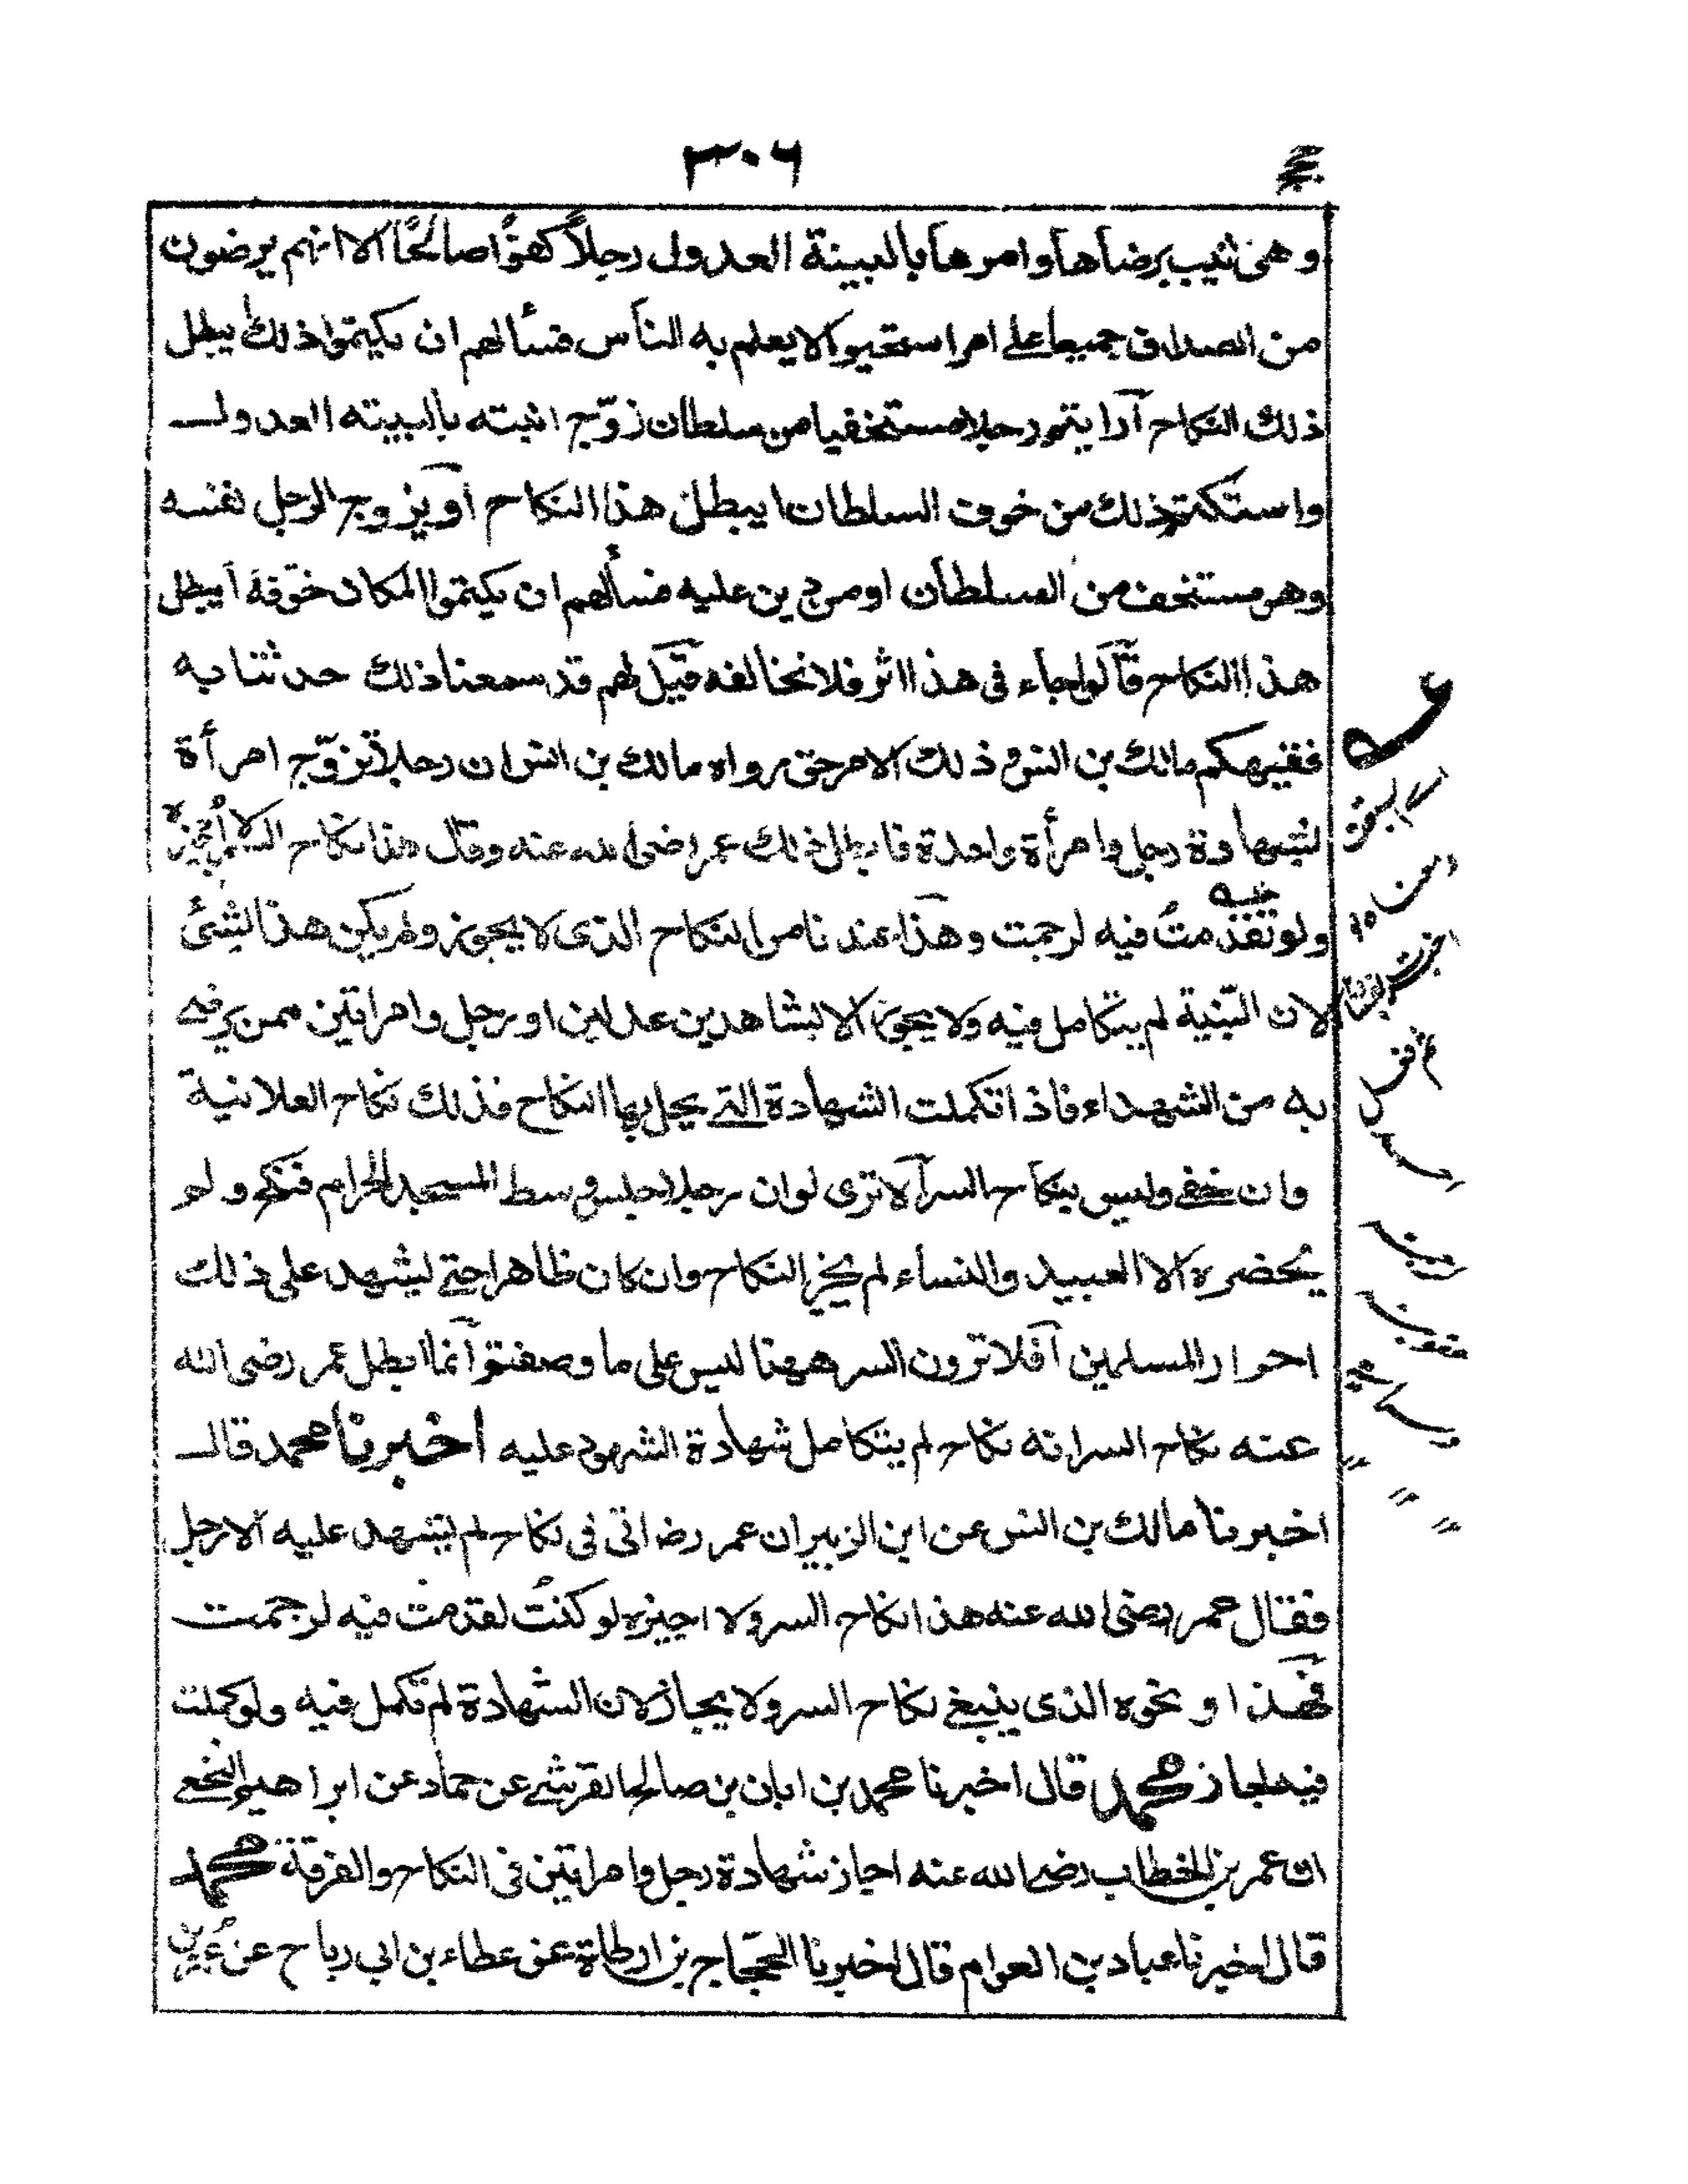 ٣٠٦
وهى ثيب برضاها وامرها بالبينة العدول رجلاً كفوًا صالحًا الا انهم يرضون
من الصداق جميعا على امر استحيوا لا يعلم به الناس فسألهم ان يكتموا ذلك يبطل
ذلك النكاح آرايتم رجلا مستخفيا من سلطان زوّج ابنته بالبينة العدول
واستكتم ذلك من خوف السلطان ايبطل هذا النكاح آو يزوج الرجل نفسه
وهو مستخف من السلطان او من دين عليه فسألهم ان يكتموا لمكان خوفه آيبطل
هذا النكاح قآلوا جاء فى هذا اثر فلا نخالفه قيل لهم قد سمعنا ذلك حدثنا به
فقيهكم مالك بن انس وذلك الامر حق رواه مالك بن انس ان رجلا تزوّج امرأة
بشهادة رجل وامرأة واحدة فابطل ذلك عمر رضى الله عنه وقال هذا نكاح السر لا أجيزه
ولو تقدمتُ فيه لرجمت وهذا عندنا من النكاح الذى لا يجوز ولم يكن هذا لشئ
لان البينة لم يتكامل فيه ولا يجوز الا بشاهدين عدلين او رجل وامراتين ممن يرضى
به من الشهداء فاذا تكملت الشهادة التى يحل بها النكاح فذلك نكاح العلانية
وان خفى وليس بنكاح السر آلا ترى لو ان رجلا جلس فى وسط المسجد الحرام فنكح ولم
يُحضره الا العبيد والنساء لم يجز النكاح وان كان ظاهرا حتى يشهد على ذلك
احرار المسلمين آفلا ترون السر ههنا ليس على ما وصفتم آنما ابطل عمر رضى الله
عنه نكاح السر انه نكاح لم يتكامل شهادة الشهود عليه اخبرنا محمد قال
اخبرنا مالك بن انس عن ابن الزبير ان عمر رض اتى فى نكاح لم يشهد عليه الا رجل
فقال عمر رضى الله عنه هذا نكاح السر ولا اجيزه لو كنتُ تقدمت فيه لرجمت
فهذا ونحوه الذى ينبغى نكاح السر ولا يجاز لان الشهادة لم تكمل فيه ولو كملت
فيه لجاز محمد قال اخبرنا محمد بن ابان بن صالح القرشى عن حماد عن ابراهيم النخعى
ان عمر بن الخطاب رضى الله عنه اجاز شهادة رجل وامراتين فى النكاح والفرقة محمد
قال اخبرنا عباد بن العوام قال اخبرنا الحجّاج بن ارطاة عن عطاء بن ابى رباح عن عمر بن